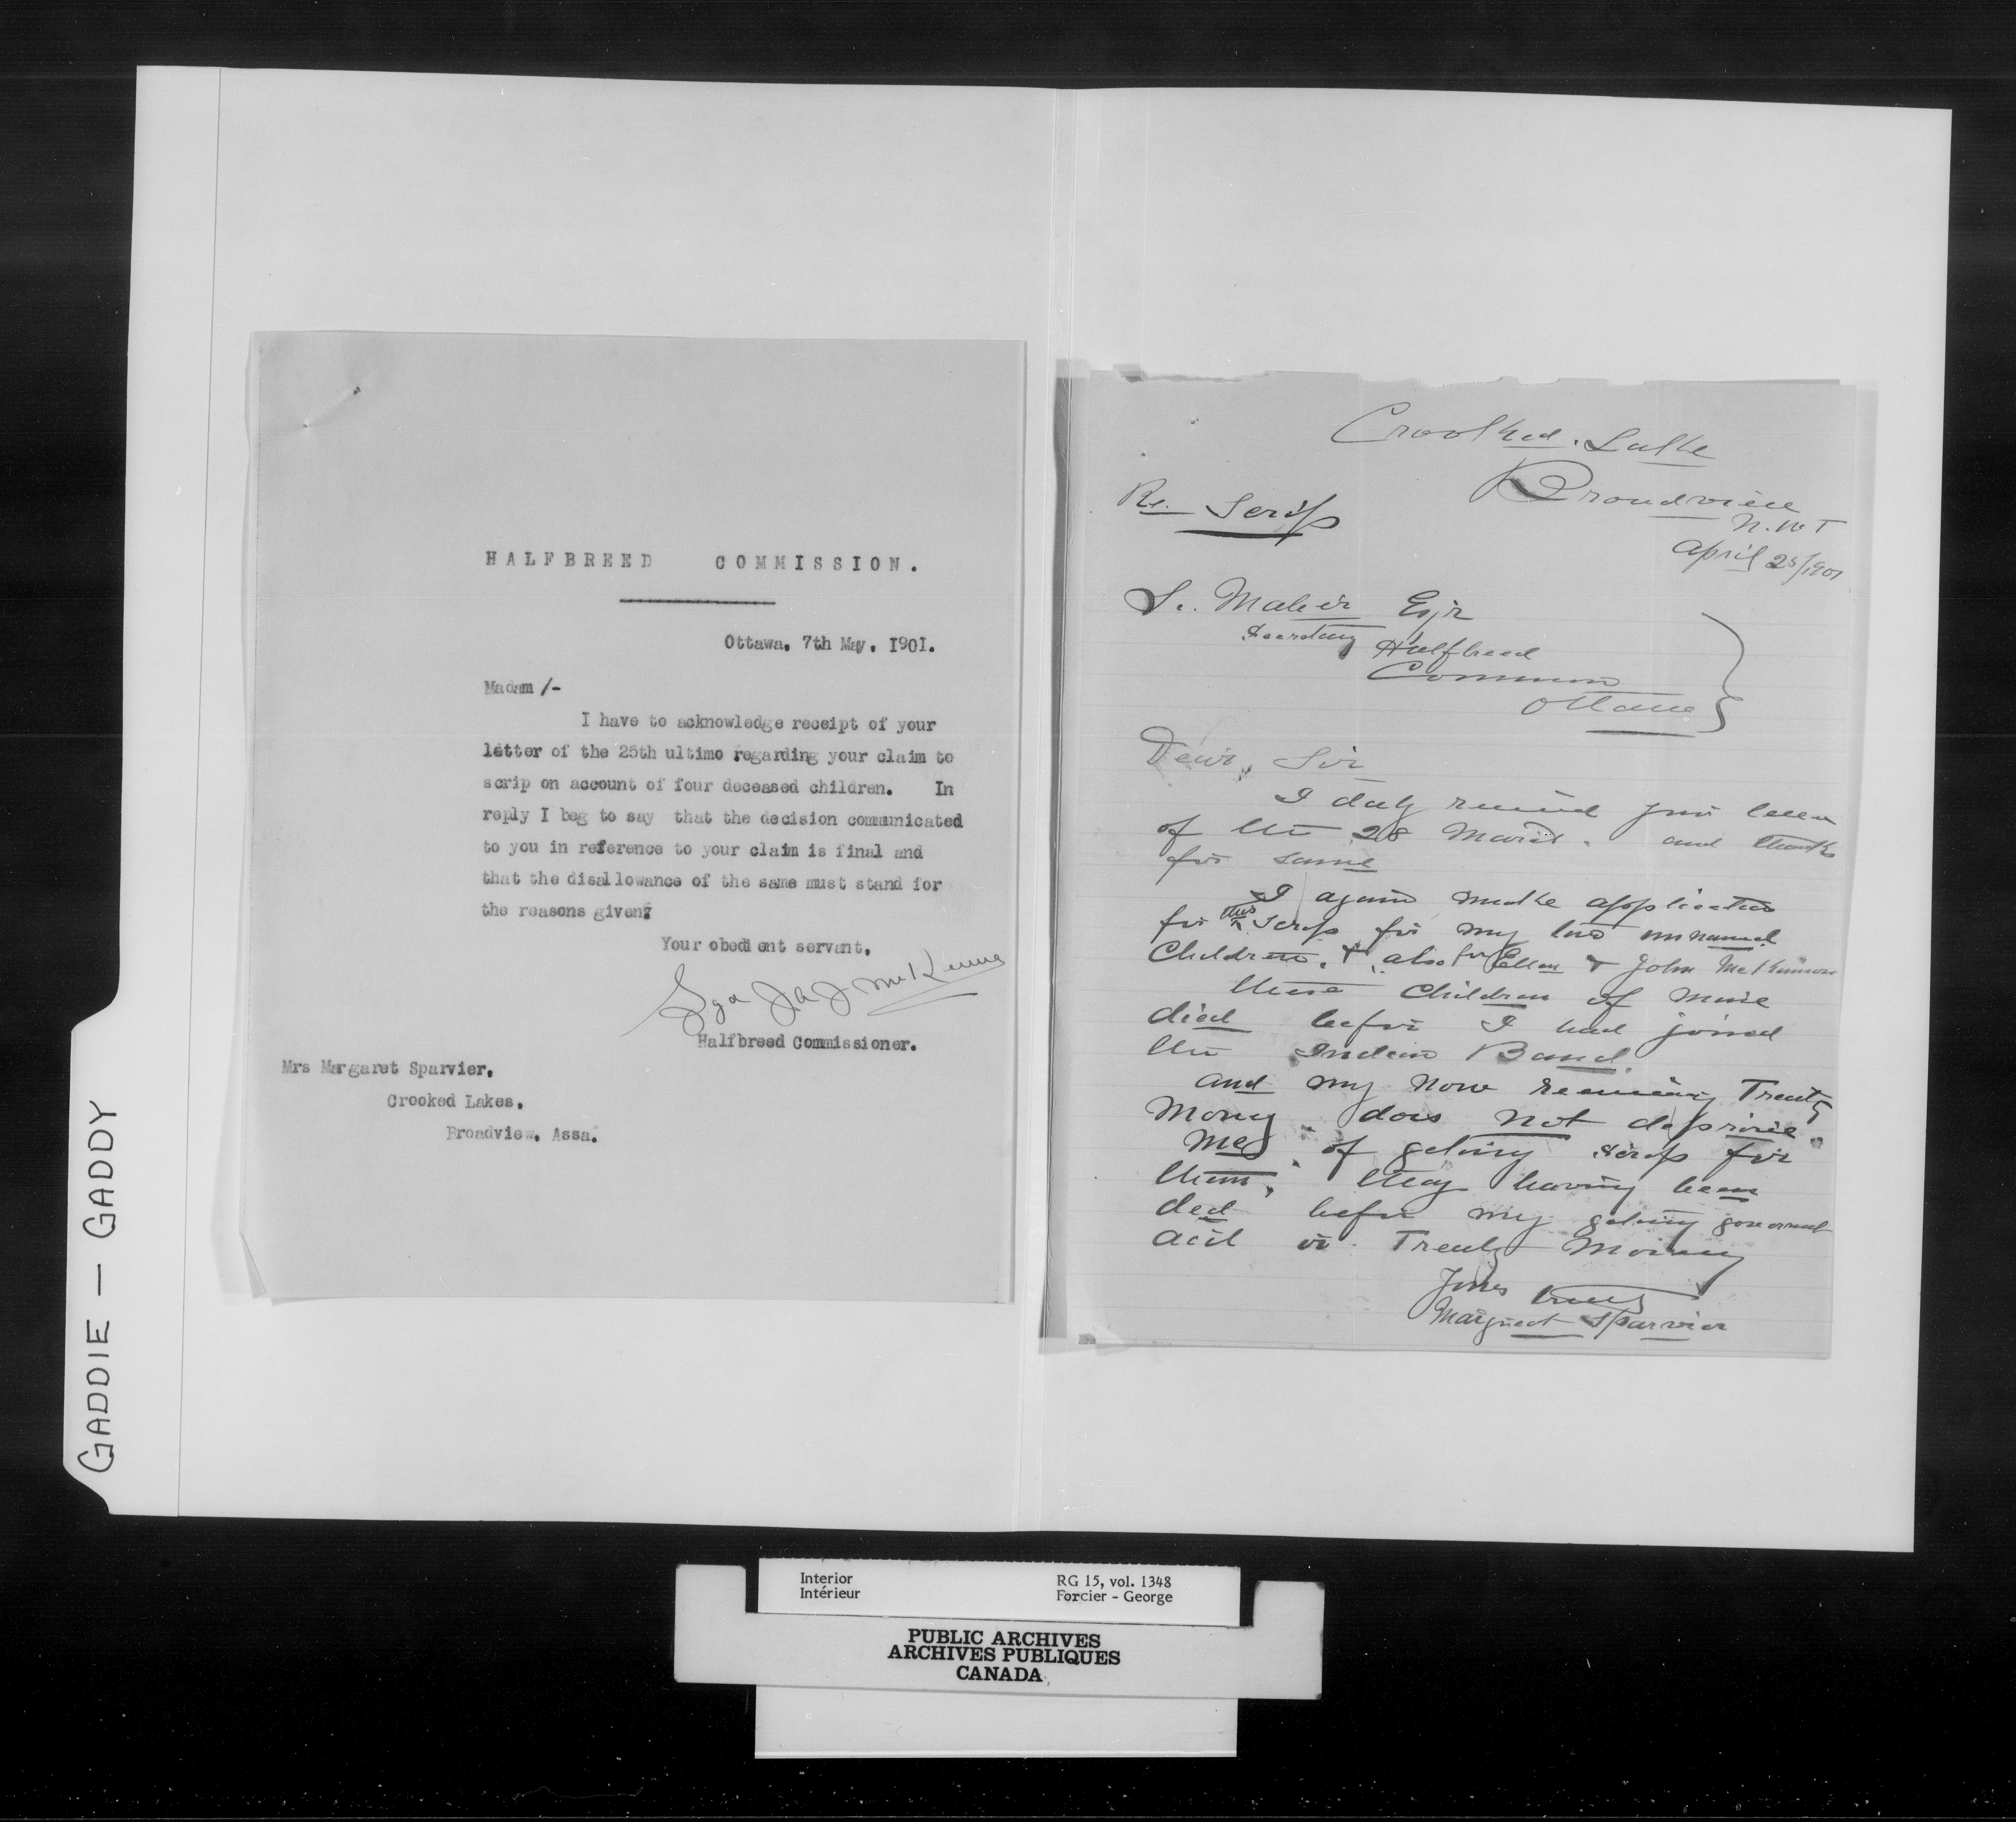 GADDIE — GADDY
HALFBREED COMMISSION.
Ottawa. 7th May. 1901.
Madam /-
I have to acknowledge receipt of your
letter of the 25th ultimo regarding your claim to
scrip on account of four deceased children. In
reply I beg to say that the decision communicated
to you in reference to your claim is final and
that the disallowance of the same must stand for
the reasons given.
Your obedient servant.
Sgd J A J McKenna
Halfbreed Commissioner.
Mrs Margaret Sparvier.
Crooked Lakes.
Broadview. Assa.
Crooked. Lake
Broadview
N.W T
April 25/1901
Re. Scrip
Esqr
Secretary Halfbreed
Common
Ottawa
Dear, Sir
I duly received your letter
of the 28 March. and thanks
for same
I again make application
for this scrip for my two unnamed
Children. & also for Ellen & John McKinnon
these children of mine
died before I had joined
the Indian Band.
and my now receiving Treaty
Money does not deprive
me of geting scrip for
them, they having been
ded before my geting goverment
acit or Treaty Money
Yours truly
Margreat Sparvier
Interior
Intérieur
RG 15, vol. 1348
Forcier - George
PUBLIC ARCHIVES
ARCHIVES PUBLIQUES
CANADA